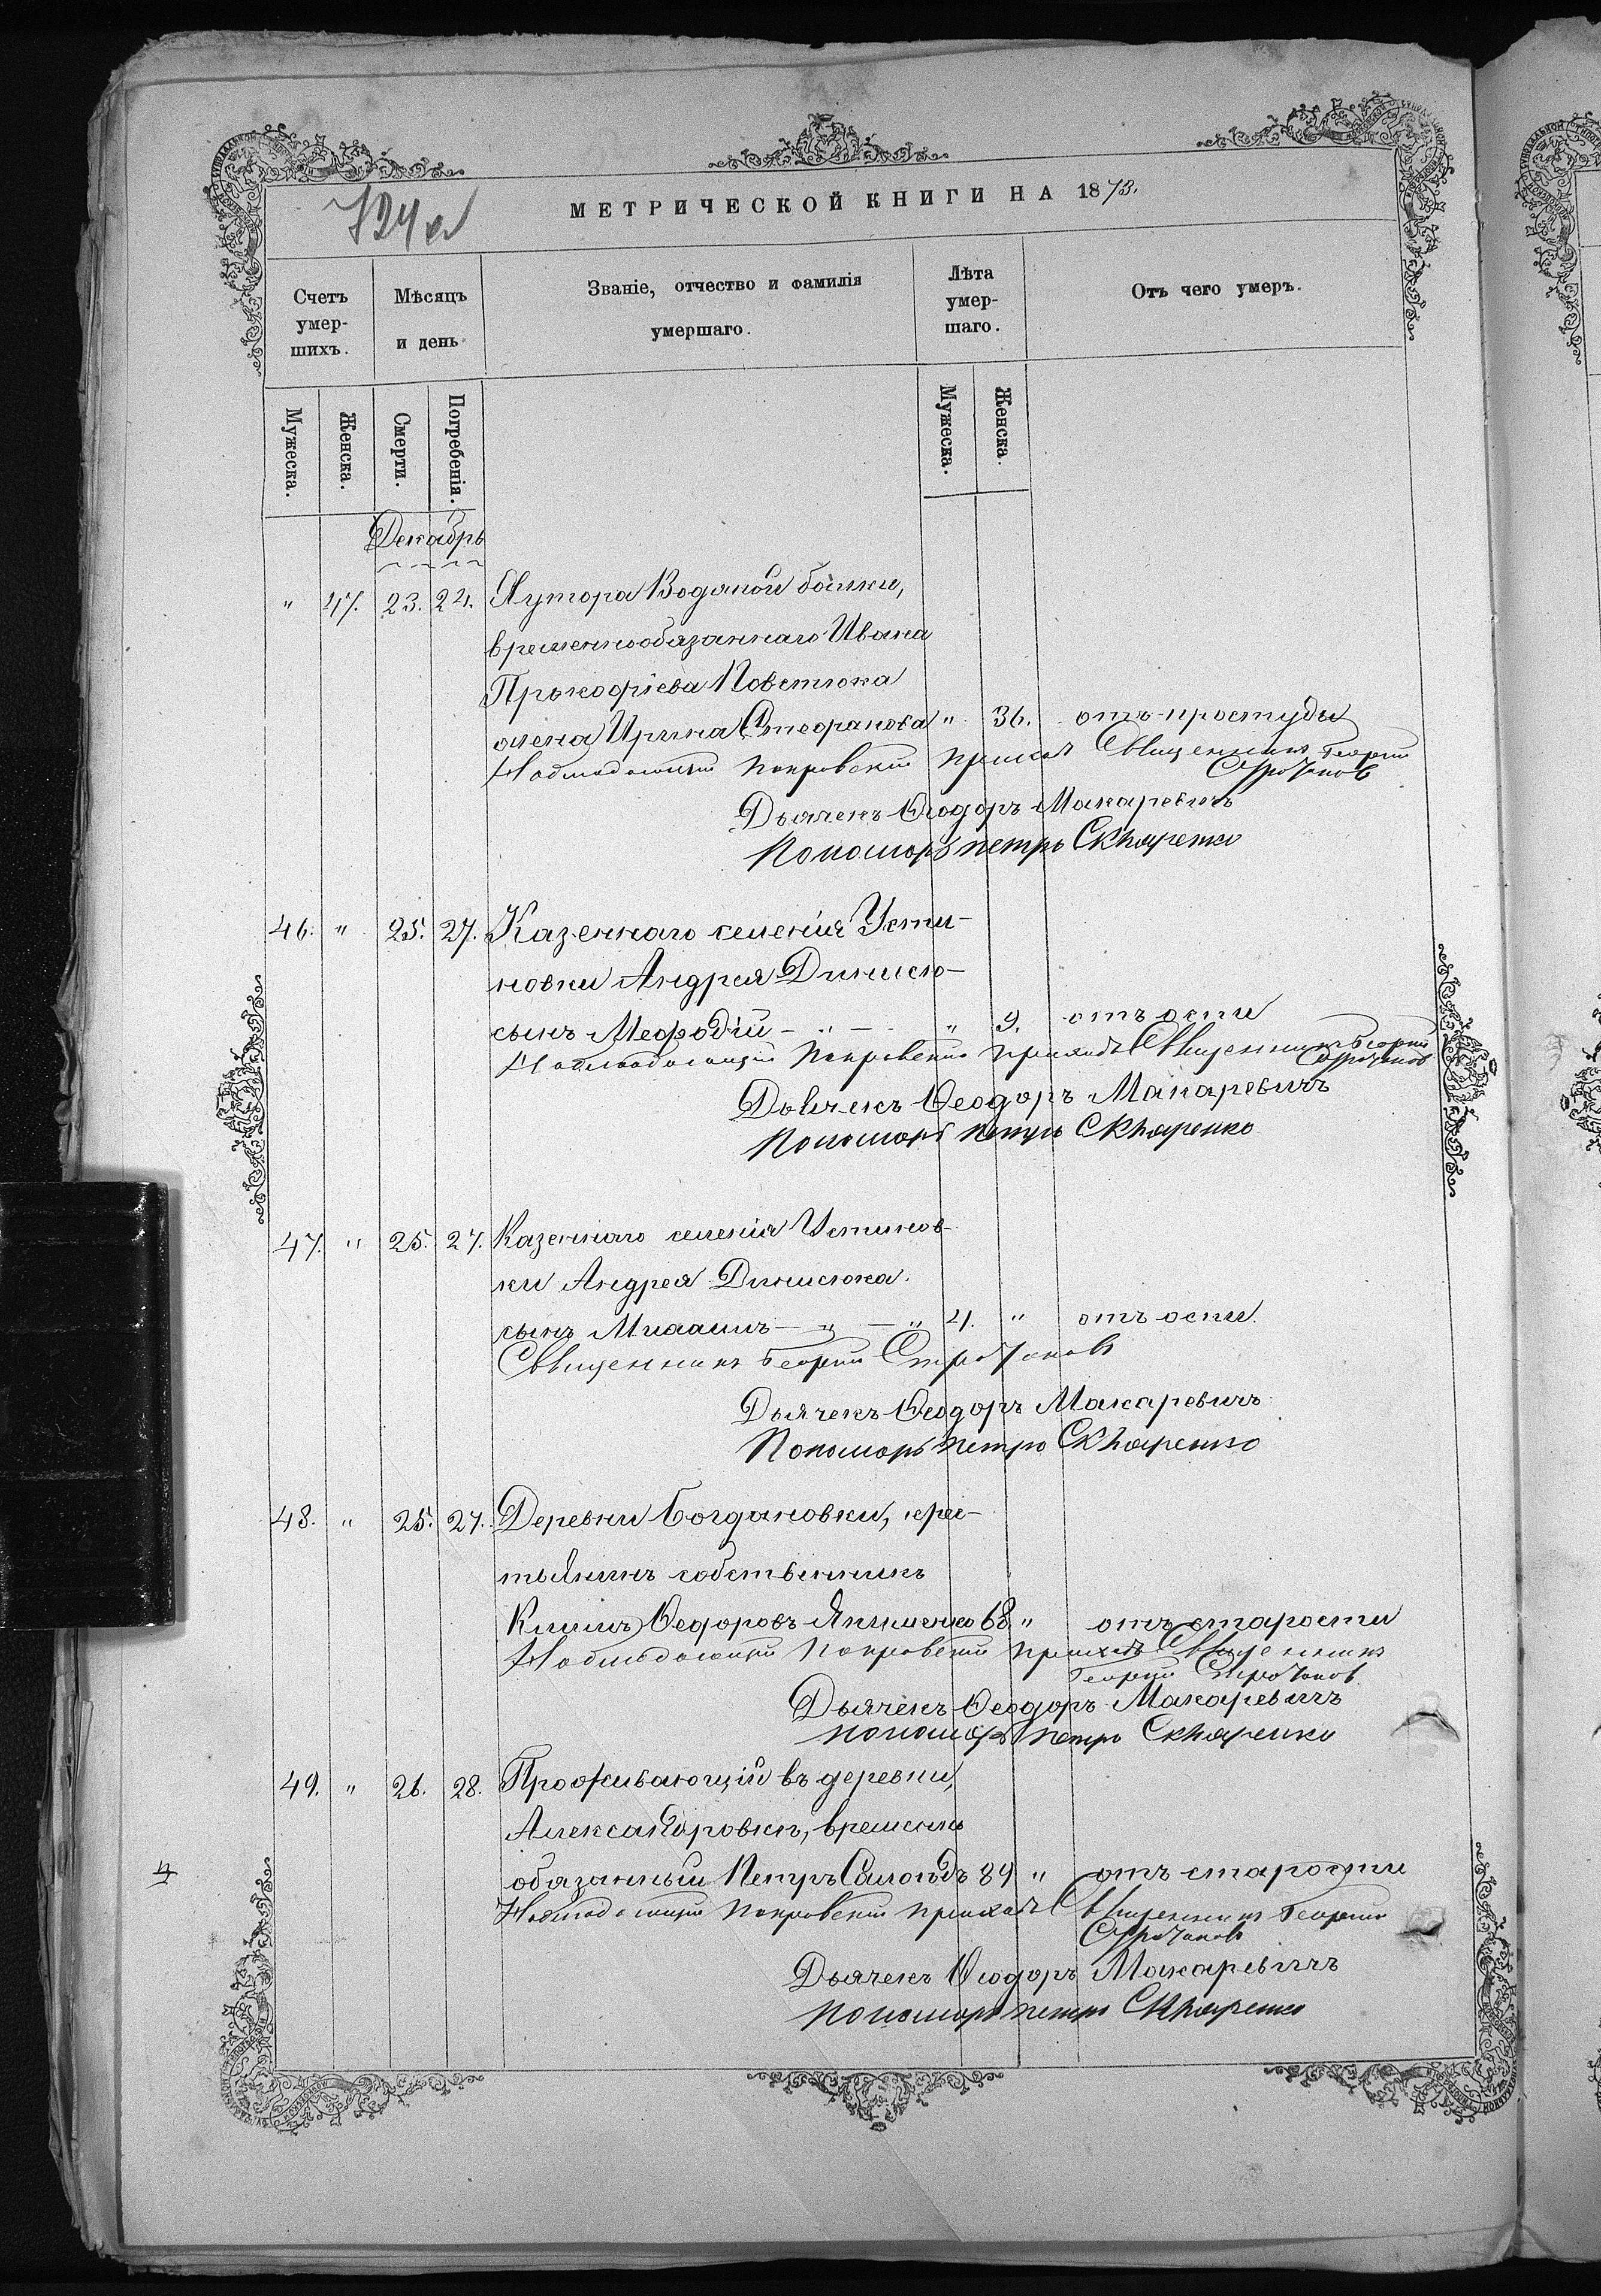 МЕТРИЧЕСКОЙ КНИГИ НА 1873.
Счетъ умер-шихъ.
Мѣсяцъ и день
Званіе, отчество и фамилія умершаго.
Лѣта умер-шаго.
Отъ чего умеръ.
Мужеска.
Женска.
Смерти.
Погребенія.
Мужеска.
Женска.
Декабрь
" 47. 23. 24. Хутора Водяной балки,
временнообязаннаго Ивана
Прокофіева
жена Ирина Стефанова " 36. отъ простуды
Наблюдающій Покровскій приходъ Священникъ Георгій
Дьячекъ Ѳеодоръ Макаревичъ
Пономарь Петръ Скляренко
46. " 25. 27. Казеннаго селенія Усти-
новки Андрея Динисю-
сынъ Мефодій - " - " 9. отъ оспы
Наблюдающій Покровскій приходъ Священникъ Георгій
Дьячекъ Ѳеодоръ Макаревичъ
Пономарь Петръ Скляренко
47. " 25. 27. Казеннаго селенія Устинов-
ки Андрея Динисюка
сынъ - " - " 4. " отъ оспы.
Священникъ Георгій
Дьячекъ Ѳеодоръ Макаревичъ
Пономарь Петръ Скляренко
48. " 25. 27. Деревни Богдановки, крес-
тьянинъ собственникъ
Климъ Ѳедоровъ Якименко 68 " отъ старости
Наблюдающій Покровскій приходъ Священникъ
Георгій
Дьячекъ Ѳеодоръ Макаревичъ
Пономарь Петръ Скляренко
49. " 26. 28. Проживающій въ деревни,
Александровки, временно
обязанный Петръ 89 " отъ старости
Наблюдающій Покровскій приходъ Священникъ Георгій
Дьячекъ Ѳеодоръ Макаревичъ
Пономарь Петръ Скляренко